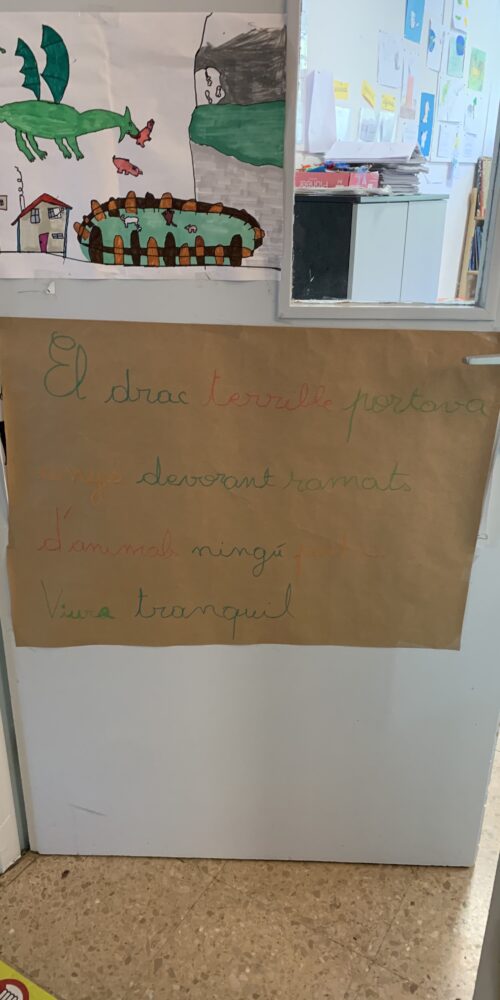 El drac terrible portava
anys devorant ramats
d'animals ningú podia
Viure tranquil